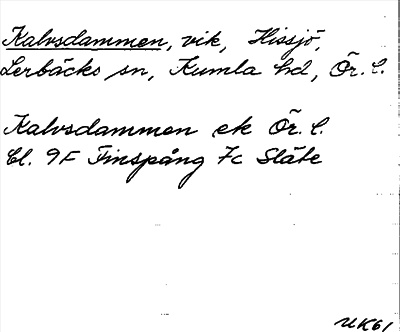 Kalvsdammen, vik, Hissjö,
Lerbäcks sn, Kumla hd, Ör. l.
Kalvsdammen ek Ör. l.
Bl. 9F Finspång 7c Släte
UK61